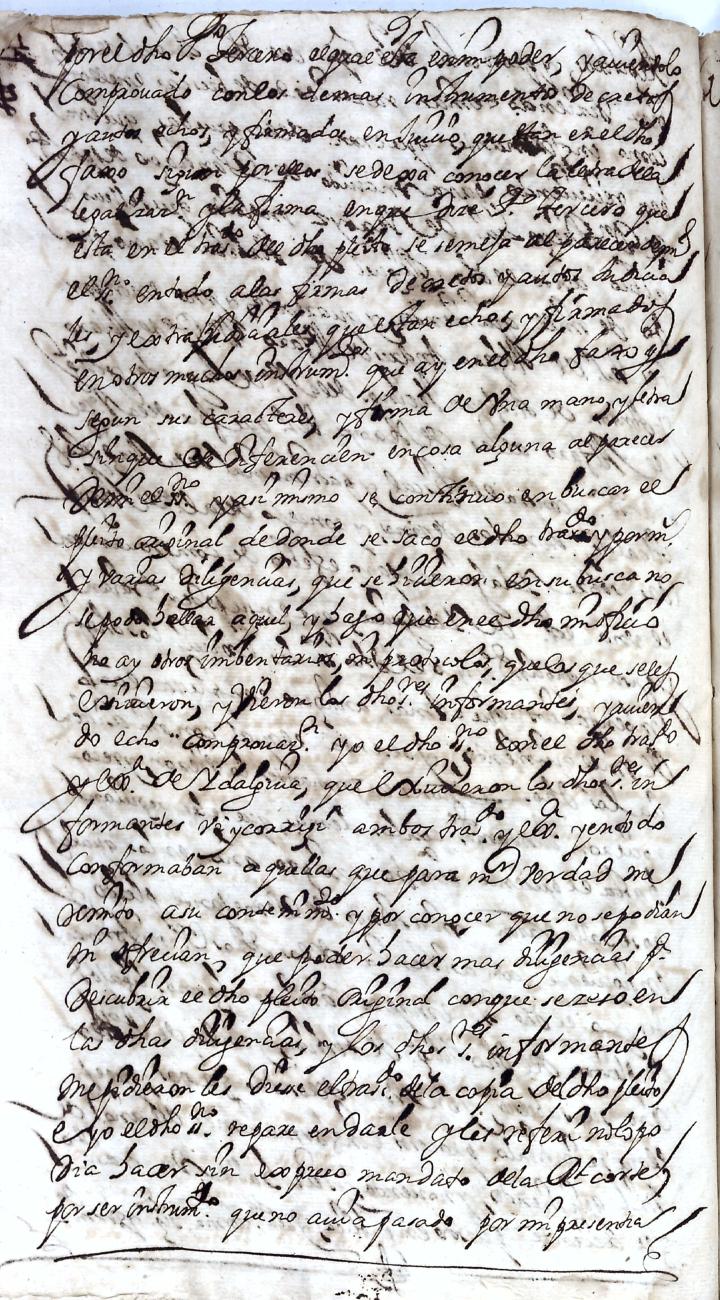 por el dho Pº Terzero el qual esta en mi poder, y auiendolo
Comprovado con los demas instrumentos decretos
y autos echos, y firmados en Juicio, que estan en el dho
faxo sigun por ellos se dexa conocer la letra de la
legalizaz.n y la firma en que dize Pº Terzero que
esta en el tras.do del dho pleito se semeja al parezer de mi
el ss.no en todo a las firmas decretos y autos Judicia
les, y extrajudiziales, que estan echos, y firmados
en otros muchos instrum.tos que ay en el dho faxo y
segun sus caracteres, y firma de Una mano, y letra
sin que se diferencien en cosa alguna al parecer
de mi el ss.no y asi mismo se continuo en buscar el
pleito original de donde se saco el dho tras.do y por m.s
y varias diligencias, que se hicieron en su busca no
se pudo hallar aquel, y bajo que en el dho mi oficio
no ay otros imbentarios, ni protocolos, que los que se les
exiuieron, y Vieron los dhos s.res informantes, y auien
do echo comprovaz.n yo el dho ss.no con el dho tras.do
y ex.a de Ydalguia, que exiuieron los dhos s.res in
formantes Vi y corrixi ambos tras.do y ex.a y en todo
conformaban aquellas que para m.r verdad me
remito a su contenim.to y por conocer que no se podian
ni ofrecian, que poder hacer mas diligencias p.a
descubrir el dho pleito Original con que se zeso en
las dhas diligencias, y los dhos s.res informantes
me pidieron les diese el tras.do de la copia del dho pleito
e yo el dho ss.no repare en darle y les referi no lo po
dia hacer sin expreso mandato de la R.l corte
por ser instrum.to que no auia pasado por mi presentia